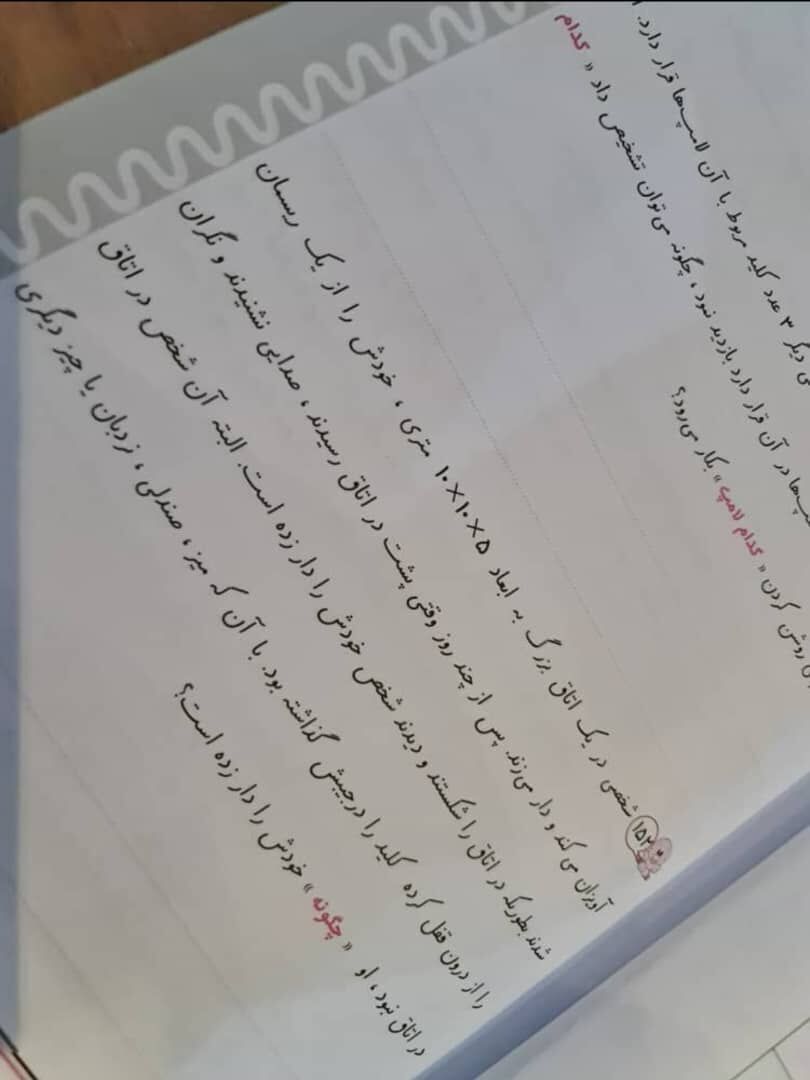 دیگر ۳ عدد کلید مربوط با آن لامپ‌ها قرار دارد.
در آن قرار دارد بازدید نبود، چگونه می‌توان تشخیص داد « کدام
روشن کردن « کدام لامپ » بکار می‌رود؟
۱۵۲ شخصی در یک اتاق بزرگ به ابعاد ۵×۱۰×۱۰ متری ، خودش را از یک ریسمان
آویزان می کند و دار می‌زند. پس از چند روز وقتی پشت در اتاق رسیدند ، صدایی نشنیدند و نگران
شدند بطوریکه در اتاق را شکستند و دیدند شخص خودش را دار زده است. البته آن شخص در اتاق
را از درون قفل کرده کلید را درجیبش گذاشته بود. با آن که میز ، صندلی ، نردبان یا چیز دیگری
در اتاق نبود ، او « چگونه » خودش را دار زده است؟